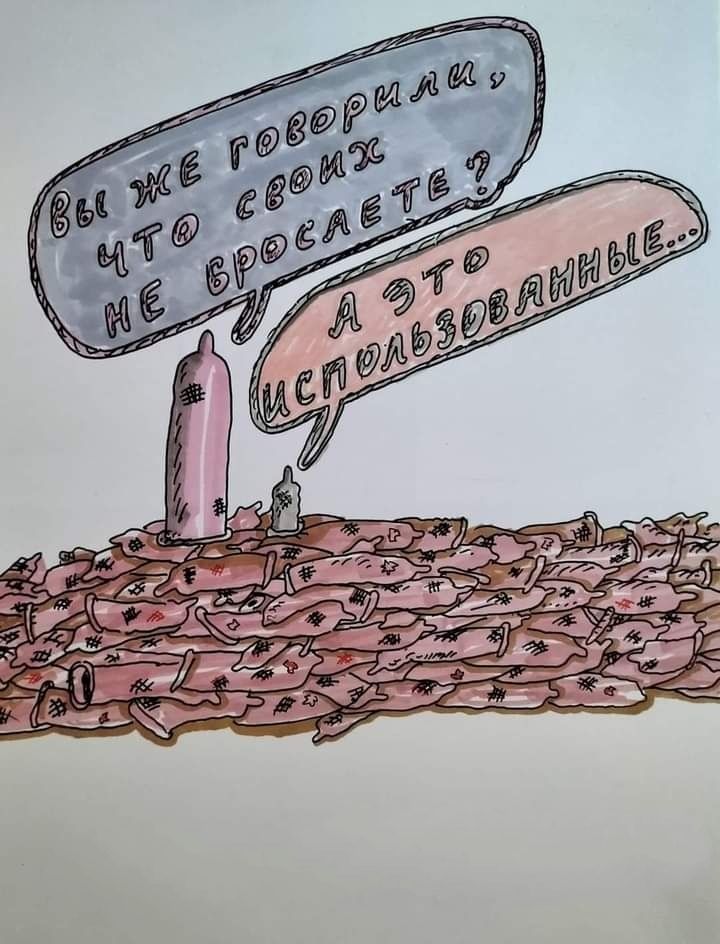 ВЫ ЖЕ ГОВОРИЛИ,
ЧТО СВОИХ
НЕ БРОСАЕТЕ?
А ЭТО
ИСПОЛЬЗОВАННЫЕ...